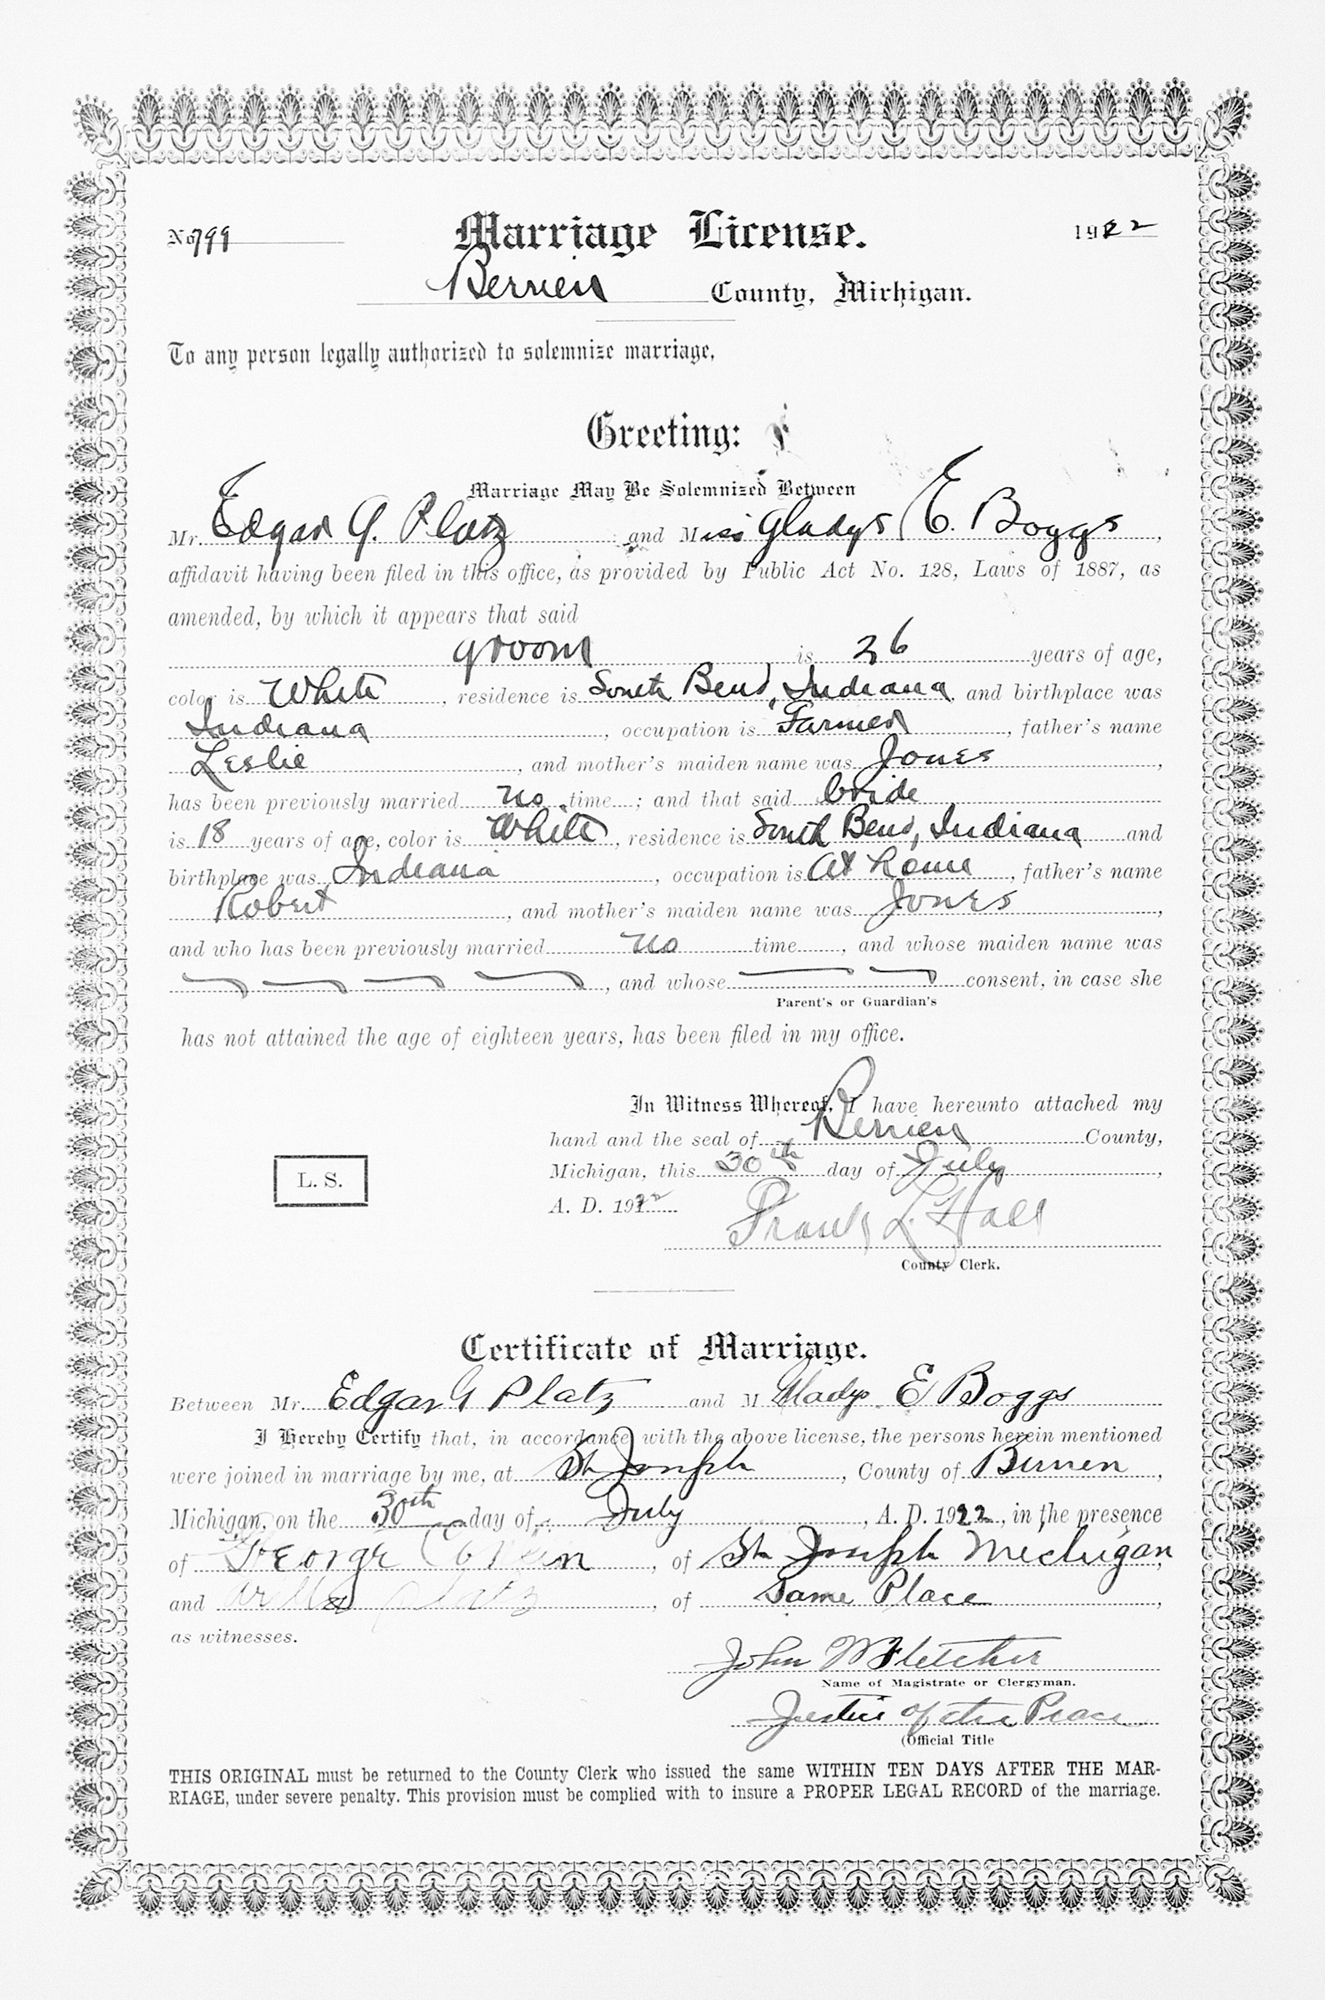 No 799 Marriage License. 1922
Berrien County, Michigan.
To any person legally authorized to solemnize marriage,
Greeting:
Marriage May Be Solemnized Between
Mr. Edgar G. Platz and Miss Gladys E. Boggs,
affidavit having been filed in this office, as provided by Public Act No. 128, Laws of 1887, as
amended, by which it appears that said
groom is 26 years of age,
color is White, residence is South Bend, Indiana, and birthplace was
Indiana, occupation is Farmer, father's name
Leslie, and mother's maiden name was Jones,
has been previously married no time; and that said bride
is 18 years of age, color is White, residence is South Bend, Indiana and
birthplace was Indiana, occupation is At Home, father's name
Robert, and mother's maiden name was Jones,
and who has been previously married no time, and whose maiden name was
, and whose consent, in case she
Parent's or Guardian's
has not attained the age of eighteen years, has been filed in my office.
In Witness Whereof, I have hereunto attached my
hand and the seal of Berrien County,
Michigan, this 30th day of July,
L. S.
A. D. 1922
Frank L. Hall
County Clerk.
Certificate of Marriage.
Between Mr. Edgar G Platz and M Gladys E Boggs
I Hereby Certify that, in accordance with the above license, the persons herein mentioned
were joined in marriage by me, at St Joseph, County of Berrien,
Michigan, on the 30th day of July, A. D. 1922, in the presence
of George, of St Joseph Michigan,
and Platz, of Same Place,
as witnesses.
John W Fletcher
Name of Magistrate or Clergyman.
Justice of the Peace
Official Title
THIS ORIGINAL must be returned to the County Clerk who issued the same WITHIN TEN DAYS AFTER THE MAR-
RIAGE, under severe penalty. This provision must be complied with to insure a PROPER LEGAL RECORD of the marriage.